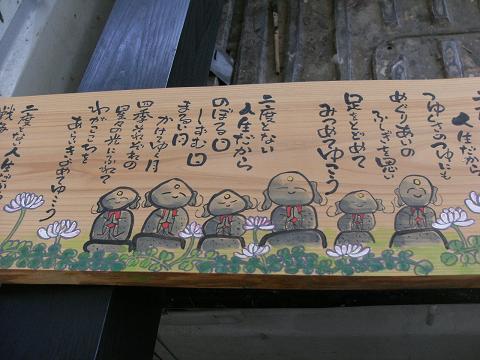 二度と
人生だから
つゆくさのつゆにも
めぐりあいの
ふしぎを思い
足をとどめて
みつめてゆこう
二度とない
人生だから
のぼる日
しずむ日
まるい月
かけゆく月
四季それぞれの
星々の光にふれて
わがこころを
あらいきよめてゆこう
二度とない人生だから
戦争